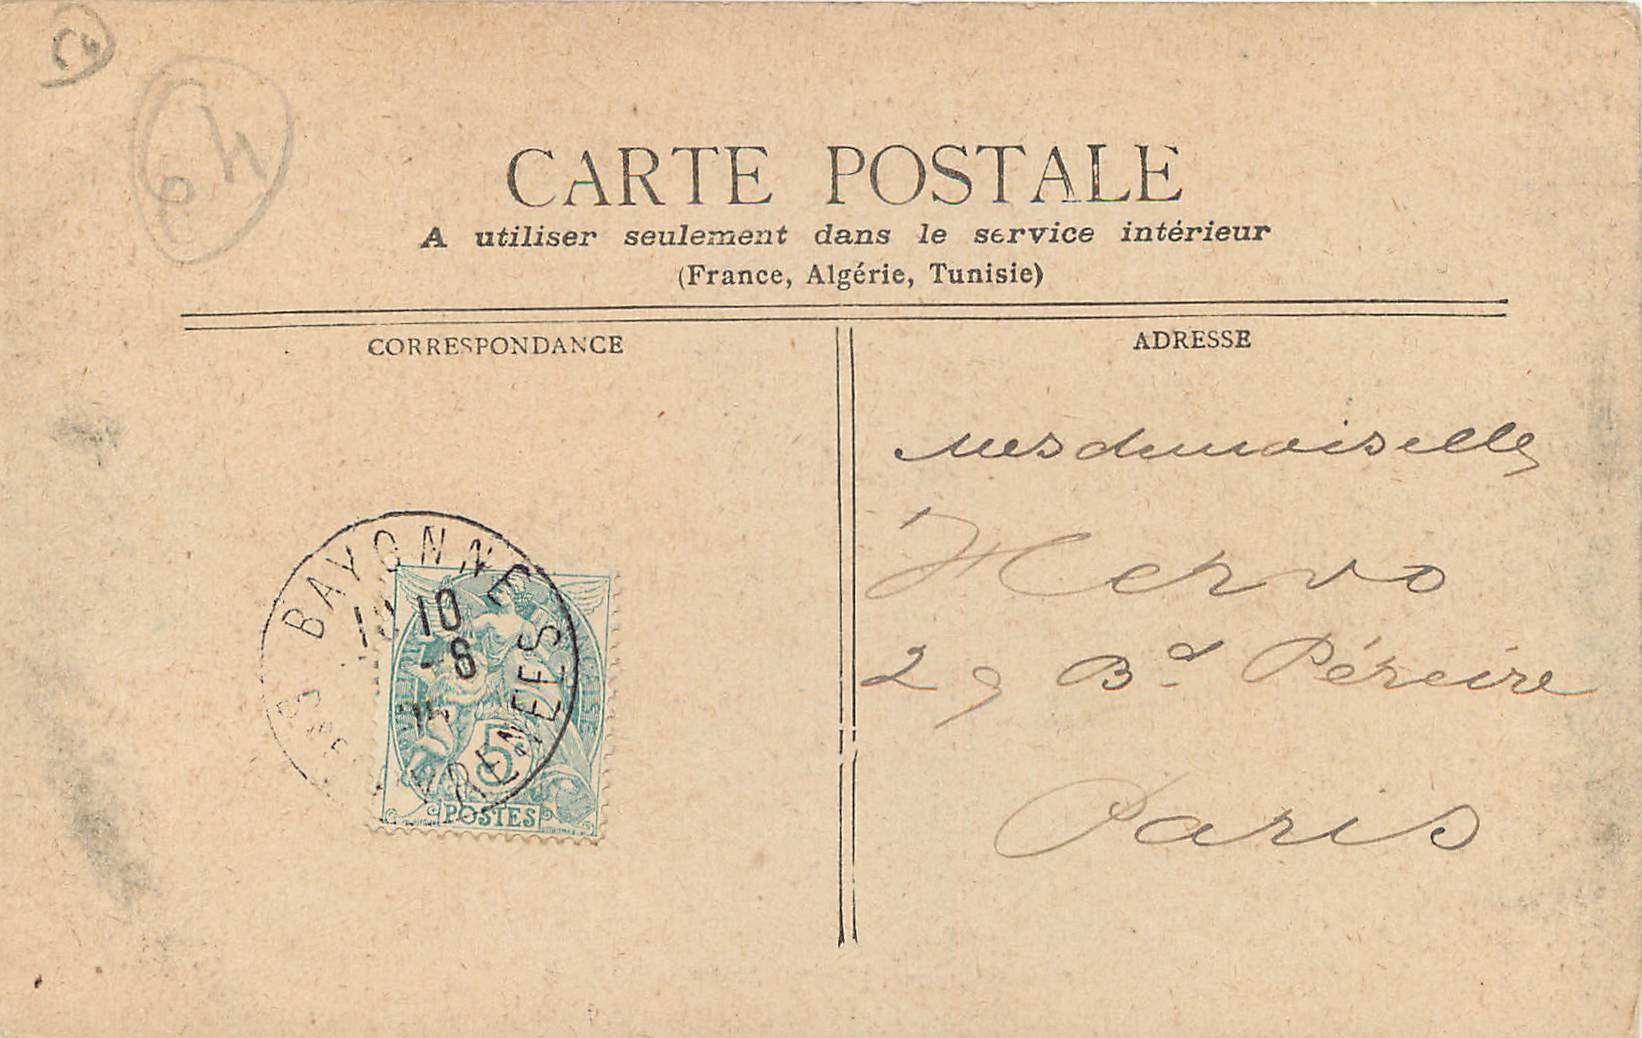 CARTE POSTALE
A utiliser seulement dans le service intérieur
(France, Algérie, Tunisie)
CORRESPONDANCE
ADRESSE
mesdemoiselles
Hervo
29 Bd. Péreire
Paris
BAYONNE
10
-8
PYRENEES
5
POSTES
64